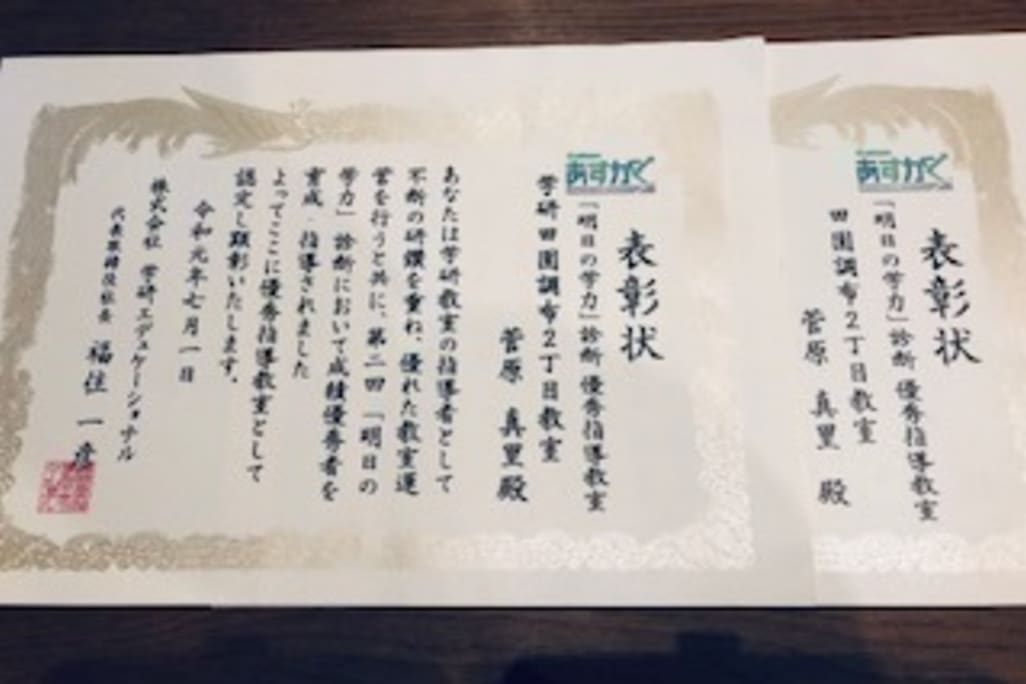 表彰状
あすがく
「明日の学力」診断 優秀指導教室
学研 田園調布2丁目教室
菅原 真里 殿
あなたは学研教室の指導者として
不断の研鑽を重ね、優れた教室運
営を行うと共に、第二回「明日の
学力」診断において成績優秀者を
育成・指導されました
よってここに優秀指導教室として
認定し顕彰いたします。
令和元年七月一日
株式会社 学研エデュケーショナル
代表取締役社長 福住 一彦
表彰状
あすがく
「明日の学力」診断 優秀指導教室
田園調布2丁目教室
菅原 真里 殿